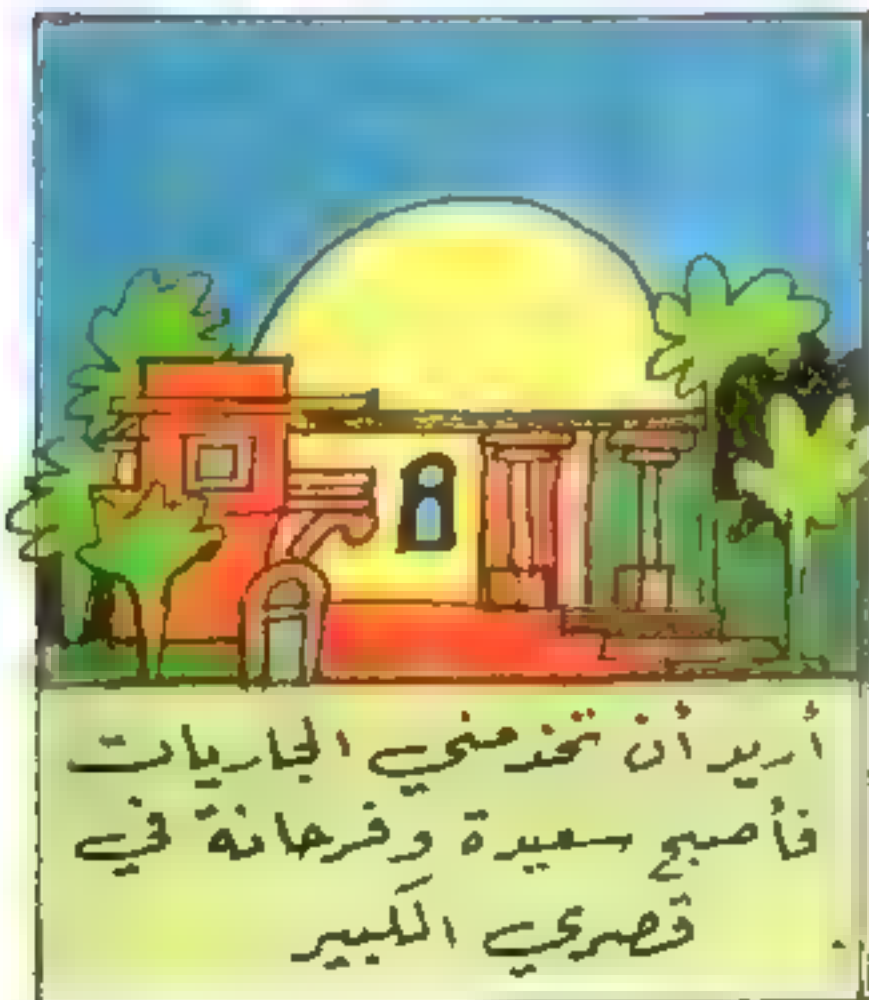 أريد أن تخدمني الجاريات
فأصبح سعيدة وفرحانة في
قصري الكبير